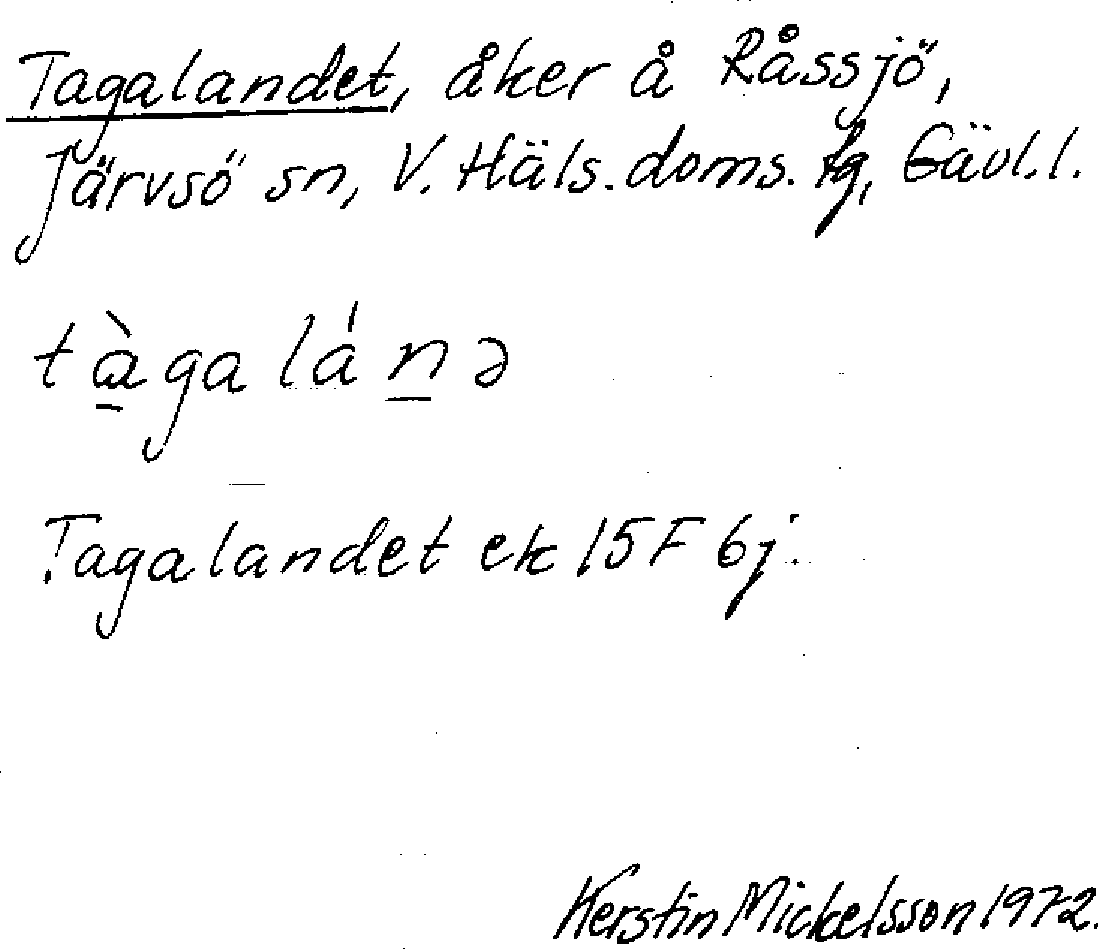 Tagalandet, åker å Råssjö,
Järvsö sn, V. Häls. doms. tg, Gävl. l.
tàgalánə
Tagalandet ek 15F 6j.
Kerstin Mickelsson 1972.